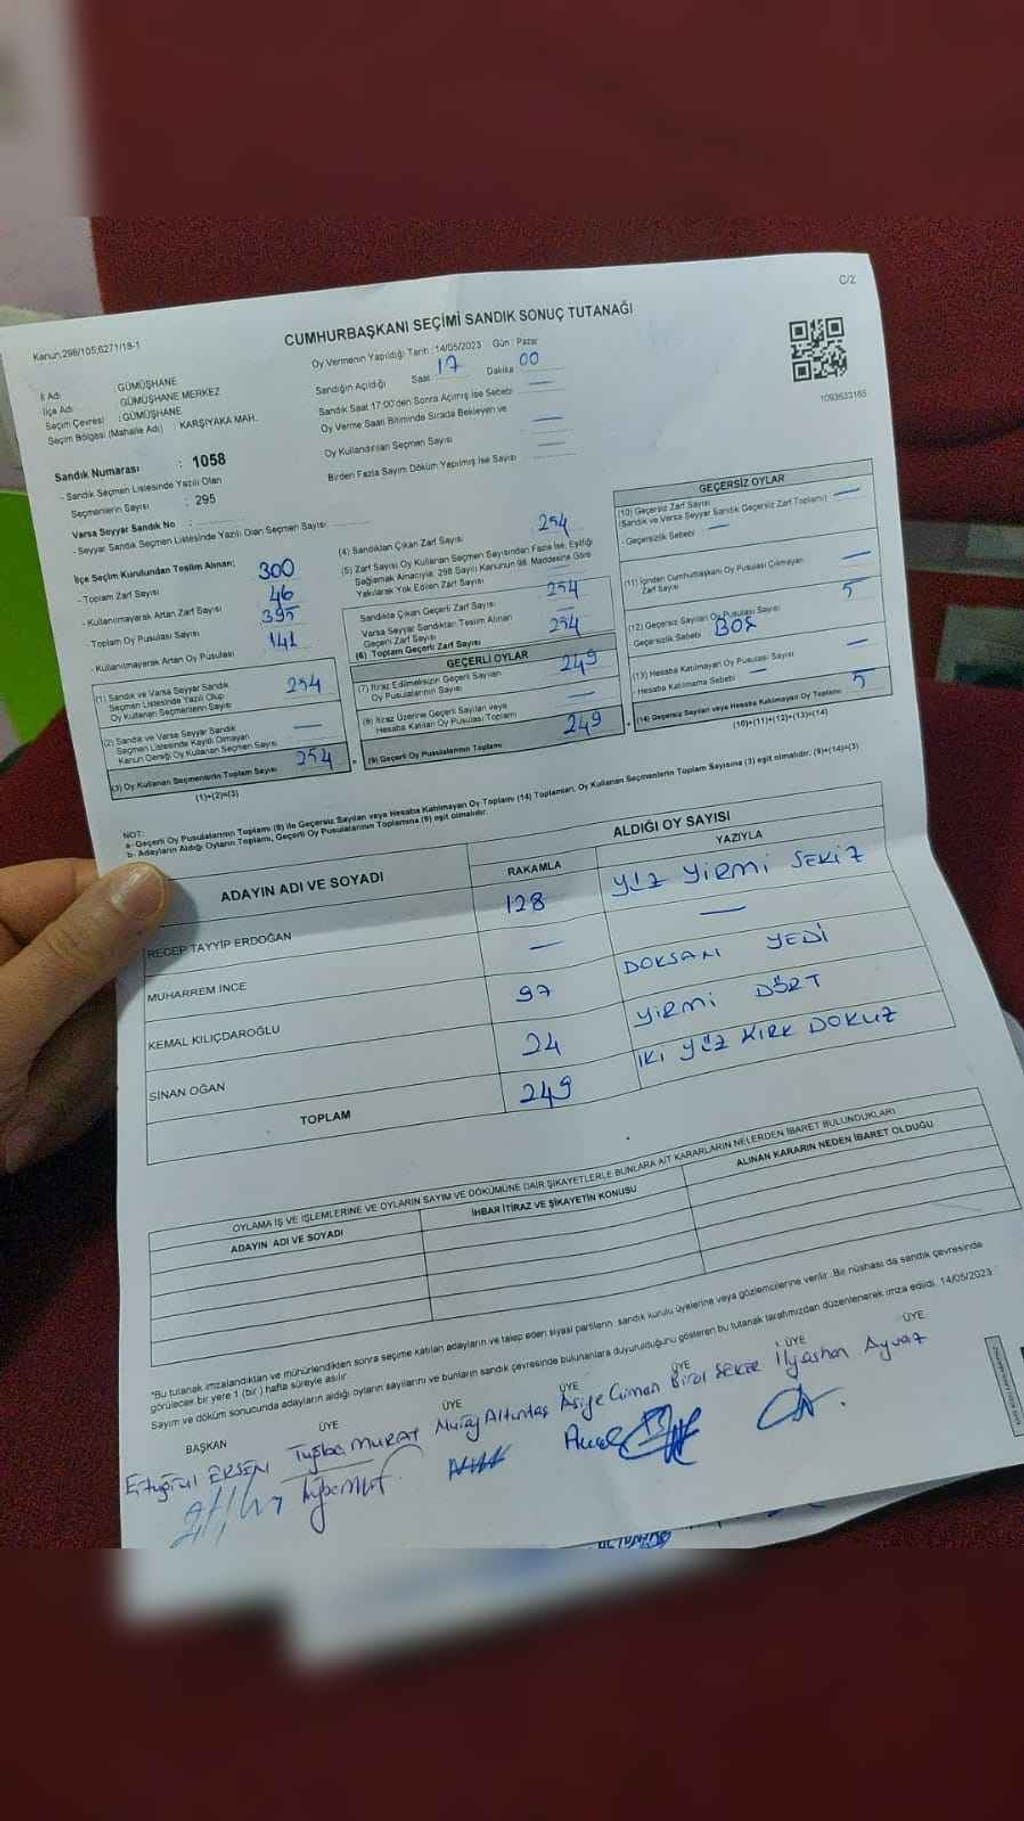 C/2
Kanun:298/105;6271/18-1
CUMHURBAŞKANI SEÇİMİ SANDIK SONUÇ TUTANAĞI
Oy Vermenin Yapıldığı Tarih : 14/05/2023 Gün : Pazar
İl Adı : GÜMÜŞHANE
İlçe Adı : GÜMÜŞHANE MERKEZ
Seçim Çevresi : GÜMÜŞHANE
Seçim Bölgesi (Mahalle Adı) : KARŞIYAKA MAH.
Sandığın Açıldığı Saat 17 Dakika 00
Sandık Saat 17:00'den Sonra Açılmış İse Sebebi —
Oy Verme Saati Bitiminde Sırada Bekleyen ve
Oy Kullandırılan Seçmen Sayısı —
Birden Fazla Sayım Döküm Yapılmış İse Sayısı —
1093633165
Sandık Numarası : 1058
- Sandık Seçmen Listesinde Yazılı Olan
Seçmenlerin Sayısı : 295
Varsa Seyyar Sandık No :
- Seyyar Sandık Seçmen Listesinde Yazılı Olan Seçmen Sayısı
İlçe Seçim Kurulundan Teslim Alınan;
- Toplam Zarf Sayısı 300
- Kullanılmayarak Artan Zarf Sayısı 46
- Toplam Oy Pusulası Sayısı 395
- Kullanılmayarak Artan Oy Pusulası 141
(1) Sandık ve Varsa Seyyar Sandık
Seçmen Listesinde Yazılı Olup
Oy Kullanan Seçmenlerin Sayısı 254
(2) Sandık ve Varsa Seyyar Sandık
Seçmen Listesinde Kayıtlı Olmayan
Kanun Gereği Oy Kullanan Seçmen Sayısı —
(3) Oy Kullanan Seçmenlerin Toplam Sayısı 254
(1)+(2)=(3)
(4) Sandıktan Çıkan Zarf Sayısı 254
(5) Zarf Sayısı Oy Kullanan Seçmen Sayısından Fazla İse, Eşitliği
Sağlamak Amacıyla, 298 Sayılı Kanunun 98. Maddesine Göre
Yakılarak Yok Edilen Zarf Sayısı
Sandıkta Çıkan Geçerli Zarf Sayısı 254
Varsa Seyyar Sandıktan Teslim Alınan
Geçerli Zarf Sayısı —
(6) Toplam Geçerli Zarf Sayısı 254
GEÇERLİ OYLAR
(7) İtiraz Edilmeksizin Geçerli Sayılan
Oy Pusulalarının Sayısı 249
(8) İtiraz Üzerine Geçerli Sayılan veya
Hesaba Katılan Oy Pusulası Toplamı —
(9) Geçerli Oy Pusulalarının Toplamı 249
GEÇERSİZ OYLAR
(10) Geçersiz Zarf Sayısı
(Sandık ve Varsa Seyyar Sandık Geçersiz Zarf Toplamı) —
- Geçersizlik Sebebi —
(11) İçinden Cumhurbaşkanı Oy Pusulası Çıkmayan
Zarf Sayısı —
(12) Geçersiz Sayılan Oy Pusulası Sayısı 5
Geçersizlik Sebebi BOŞ
(13) Hesaba Katılmayan Oy Pusulası Sayısı —
Hesaba Katılmama Sebebi —
(14) Geçersiz Sayılan veya Hesaba Katılmayan Oy Toplamı 5
(10)+(11)+(12)+(13)=(14)
NOT:
a- Geçerli Oy Pusulalarının Toplamı (9) ile Geçersiz Sayılan veya Hesaba Katılmayan Oy Toplamı (14) Toplamları, Oy Kullanan Seçmenlerin Toplam Sayısına (3) eşit olmalıdır. (9)+(14)=(3)
b- Adayların Aldığı Oyların Toplamı, Geçerli Oy Pusulalarının Toplamına (9) eşit olmalıdır.
ADAYIN ADI VE SOYADI ALDIĞI OY SAYISI
RAKAMLA YAZIYLA
RECEP TAYYİP ERDOĞAN 128 YÜZ YİRMİ SEKİZ
MUHARREM İNCE — —
KEMAL KILIÇDAROĞLU 97 DOKSAN YEDİ
SİNAN OĞAN 24 YİRMİ DÖRT
TOPLAM 249 İKİ YÜZ KIRK DOKUZ
OYLAMA İŞ VE İŞLEMLERİNE VE OYLARIN SAYIM VE DÖKÜMÜNE DAİR ŞİKAYETLERLE BUNLARA AİT KARARLARIN NELERDEN İBARET BULUNDUKLARI
ADAYIN ADI VE SOYADI İHBAR İTİRAZ VE ŞİKAYETİN KONUSU ALINAN KARARIN NEDEN İBARET OLDUĞU
*Bu tutanak imzalandıktan ve mühürlendikten sonra seçime katılan adayların ve talep eden siyasi partilerin sandık kurulu üyelerine veya gözlemcilerine verilir. Bir nüshası da sandık çevresinde
görülecek bir yere 1 (bir) hafta süreyle asılır.
Sayım ve döküm sonucunda adayların aldığı oyların sayılarını ve bunların sandık çevresinde bulunanlara duyurulduğunu gösteren bu tutanak tarafımızdan düzenlenerek imza edildi. 14/05/2023
BAŞKAN ÜYE ÜYE ÜYE ÜYE ÜYE ÜYE
Ertuğrul ERSEN Tuğba MURAT Nuray Altuntaş Asiye Cuman Birol ŞEKER İlyashan Ayvaz